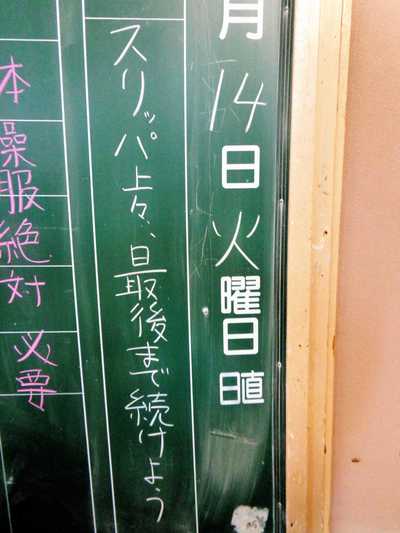 月14日火曜日
日直
スリッパ上々、最後まで続けよう
体操服絶対必要